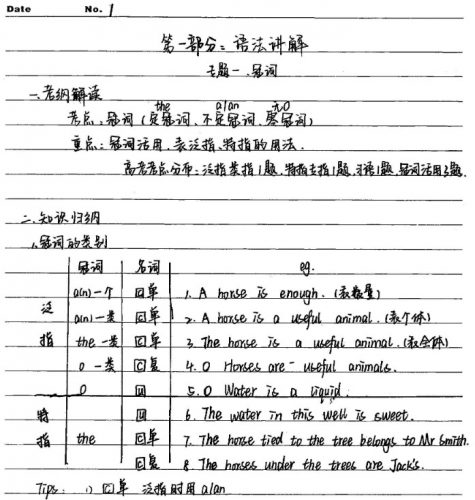 Date No. 1
第一部分：语法讲解
专题一.冠词
一、考纲解读
the a/an 九0
考点：冠词（定冠词、不定冠词、零冠词）
重点：冠词活用、表泛指、特指的用法.
高考考点分布：泛指类指1题、特指去指1题、习语1题、冠词活用2题.
二、知识归纳
1、冠词的类别
冠词 名词 eg.
泛指
a(n)一个 [C]单 1. A horse is enough.（表数量）
a(n)一类 [C]单 2. A horse is a useful animal.（表个体）
the 一类 [C]单 3. The horse is a useful animal.（表全体）
0 一类 [C]复 4. 0 Horses are useful animals.
0 [U] 5. 0 Water is a liquid.
特指
[U] 6. The water in this well is sweet.
the [C]单 7. The horse tied to the tree belongs to Mr Smith.
[C]复 8. The horses under the trees are Jack's.
Tips: 1) [C]单 泛指时用a/an